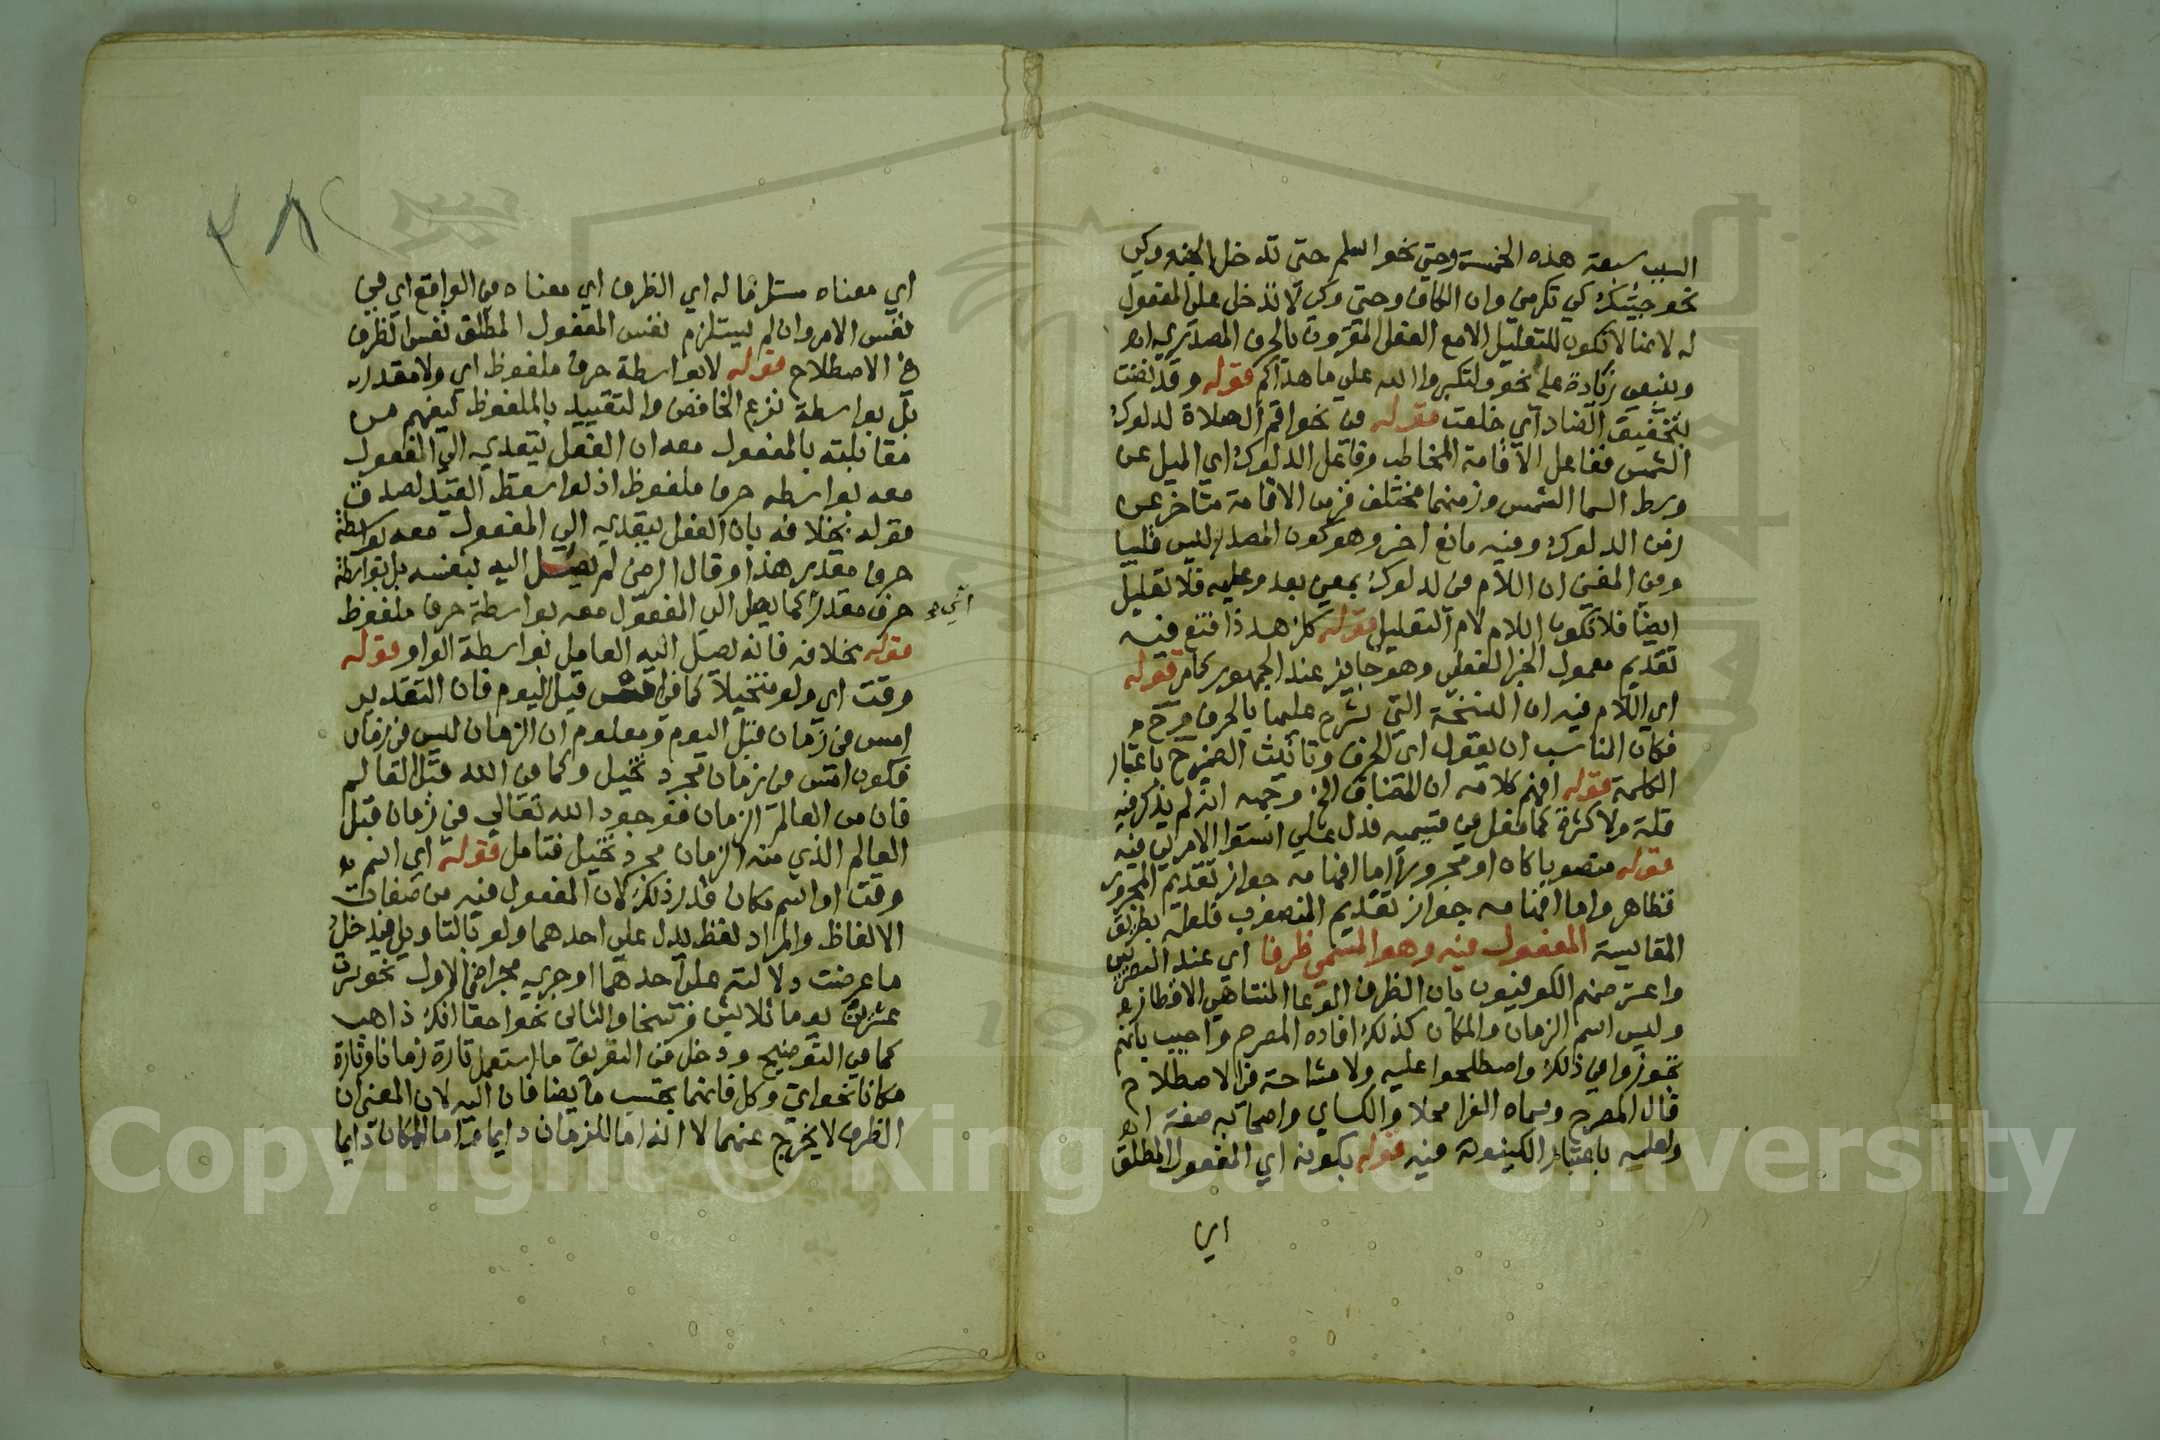 السبب سبعة هذه الخمسة وحتي نحو اسلم حتي تدخل الجنة وكي
نحو جيتك كي تكرمني وان الكاف وحتي وكي لا تدخل علي المفعول
له لانها لا تكون للتعليل الا مع الفعل المقرون بالحرف المصدري اه
وينبغي زيادة علي نحو ولتكبروا الله علي ما هداكم قوله وقد نضت
بتخفيف الضاد اي خلعت قوله من نحو اقم الصلاة لدلوك
الشمس ففاعل الاقامة المخاطب وفاعل الدلوك اي الميل عن
وسط السما الشمس وزمنهما مختلف فزمن الاقامة متاخر عن
زمن الدلوك وفيه مانع اخر وهو كون المصدر ليس قلبيا
وفي المغني ان اللام في لدلوك بمعني بعد وعليه فلا تعليل
ايضا فلا تكون اللام لام التعليل قوله كل هذا قنع فيه
تقديم معمول الخبر الفعلي وهو جايز عند الجمهور كما مر قوله
اي اللام فيه ان النسخة التي شرح عليها بالحرف
فكان المناسب ان يقول اي الحرف وتانيث الضمير باعتبار
الكلمة قوله افهم كلامه ان المضاف الخ وجهه انه لم يذكر فيه
قلة ولا كثرة كما فعل في قسيميه فدل علي استوا الامرين فيه
قوله منصوبا كان او مجرورا اما افهامه جواز تقديم المجرور
فظاهر واما افهامه جواز تقديم المنصوب فلعله بطريق
المقايسة المفعول فيه وهو المسمي ظرفا اي عند البصريين
واعترضهم الكوفيون بان الظرف الوعا المتناهي الاقطار
وليس اسم الزمان والمكان كذلك افاده المصرح واجيب بانهم
تجوزوا في ذلك واصطلحوا عليه ولا مشاحة في الاصطلاح
قال المصرح وسماه الفرا محلا والكساي واصحابه صفة اه
ولعله باعتبار الكينونة فيه قوله بكونه اي المفعول المطلق
اي
اي معناه مستلزما له اي الظرف اي معناه في الواقع اي في
نفس الامر وان لم يستلزم نفس المفعول المطلق نفس الظرف
في الاصطلاح قوله لا بواسطة حرف ملفوظ اي ولا مقدر
بل بواسطة نزع الخافض والتقييد بالملفوظ ليفهم من
مقابلته بالمفعول معه ان الفعل يتعدي الي المفعول
معه بواسطه حرف ملفوظ اذ لو اسقط القيد لصدق
قوله بخلافه بان الفعل يتعدي الي المفعول معه بواسطة
حرف مقدر هذا وقال الرضي لم يصل اليه بنفسه بل بواسطة
حرف مقدر كما يصل الي المفعول معه بواسطة حرف ملفوظ
انتهي
قوله بخلافه فانه يصل اليه العامل بواسطة الواو قوله
وقت اي ولو تخيلا كما في امس قبل اليوم فان التقدير
امس في زمان قبل اليوم ومعلوم ان الزمان ليس في زمان
فكون امس في زمان مجرد تخيل وكما في الله قبل العالم
فان من العالم الزمان فوجود الله تعالي في زمان قبل
العالم الذي منه الزمان مجرد تخيل فتامل قوله اي اسم
وقت او اسم مكان قدر ذلك لان المفعول فيه من صفات
الالفاظ والمراد لفظ يدل علي احدهما ولو بالتاويل فيدخل
ما عرضت دلالته علي احدهما او جري مجراه فالاول نحو سرت
عشرين يوما ثلاثين فرسخا والثاني نحو احقا انك ذاهب
كما في التوضيح ودخل في التعريف ما استعمل تارة زمانا وتارة
مكانا نحو اي وكل فانهما بحسب ما يضافان اليه لان المعني ان
الظرف لا يخرج عنهما لا انه اما للزمان دايما واما للمكان دايما
Copyright © King Saud University